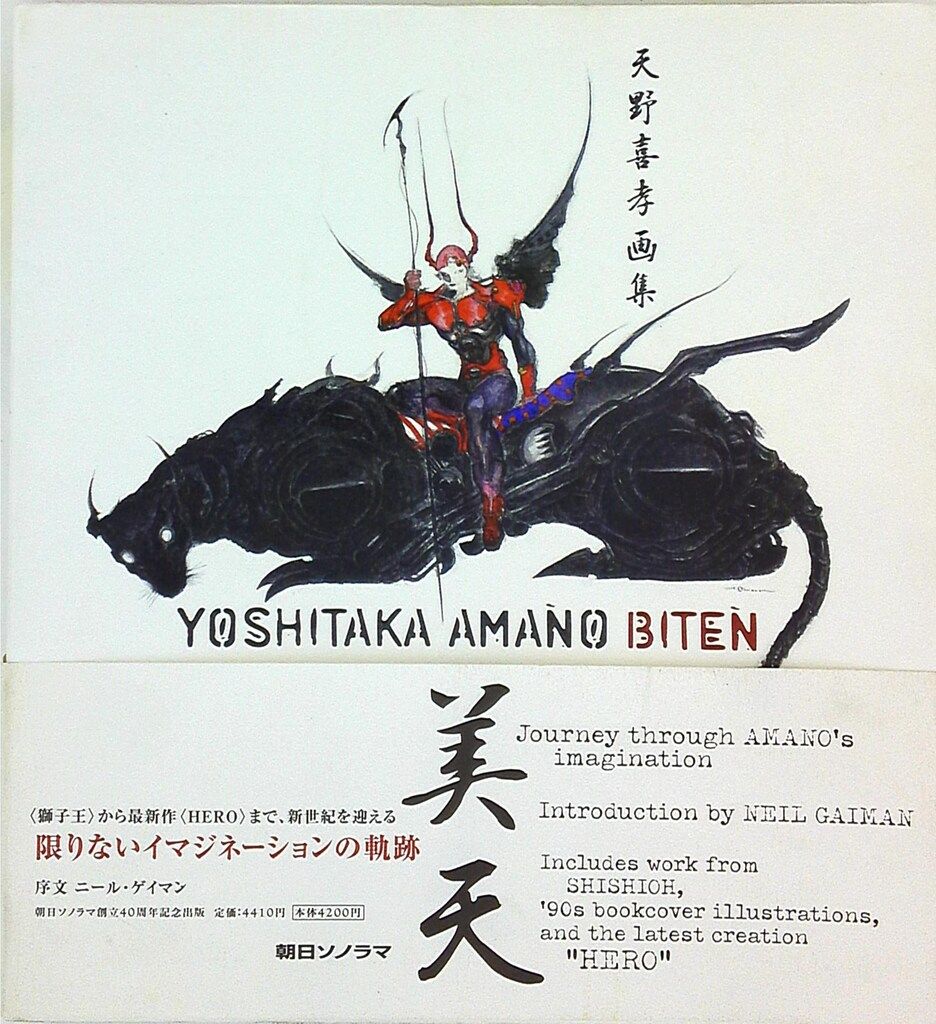 天野喜孝画集
YOSHITAKA AMANO BITEN
美天
Journey through AMANO's
imagination
Introduction by NEIL GAIMAN
Includes work from
SHISHIOH,
'90s bookcover illustrations,
and the latest creation
"HERO"
〈獅子王〉から最新作〈HERO〉まで、新世紀を迎える
限りないイマジネーションの軌跡
序文 ニール・ゲイマン
朝日ソノラマ創立40周年記念出版 定価:4410円 本体4200円
朝日ソノラマ